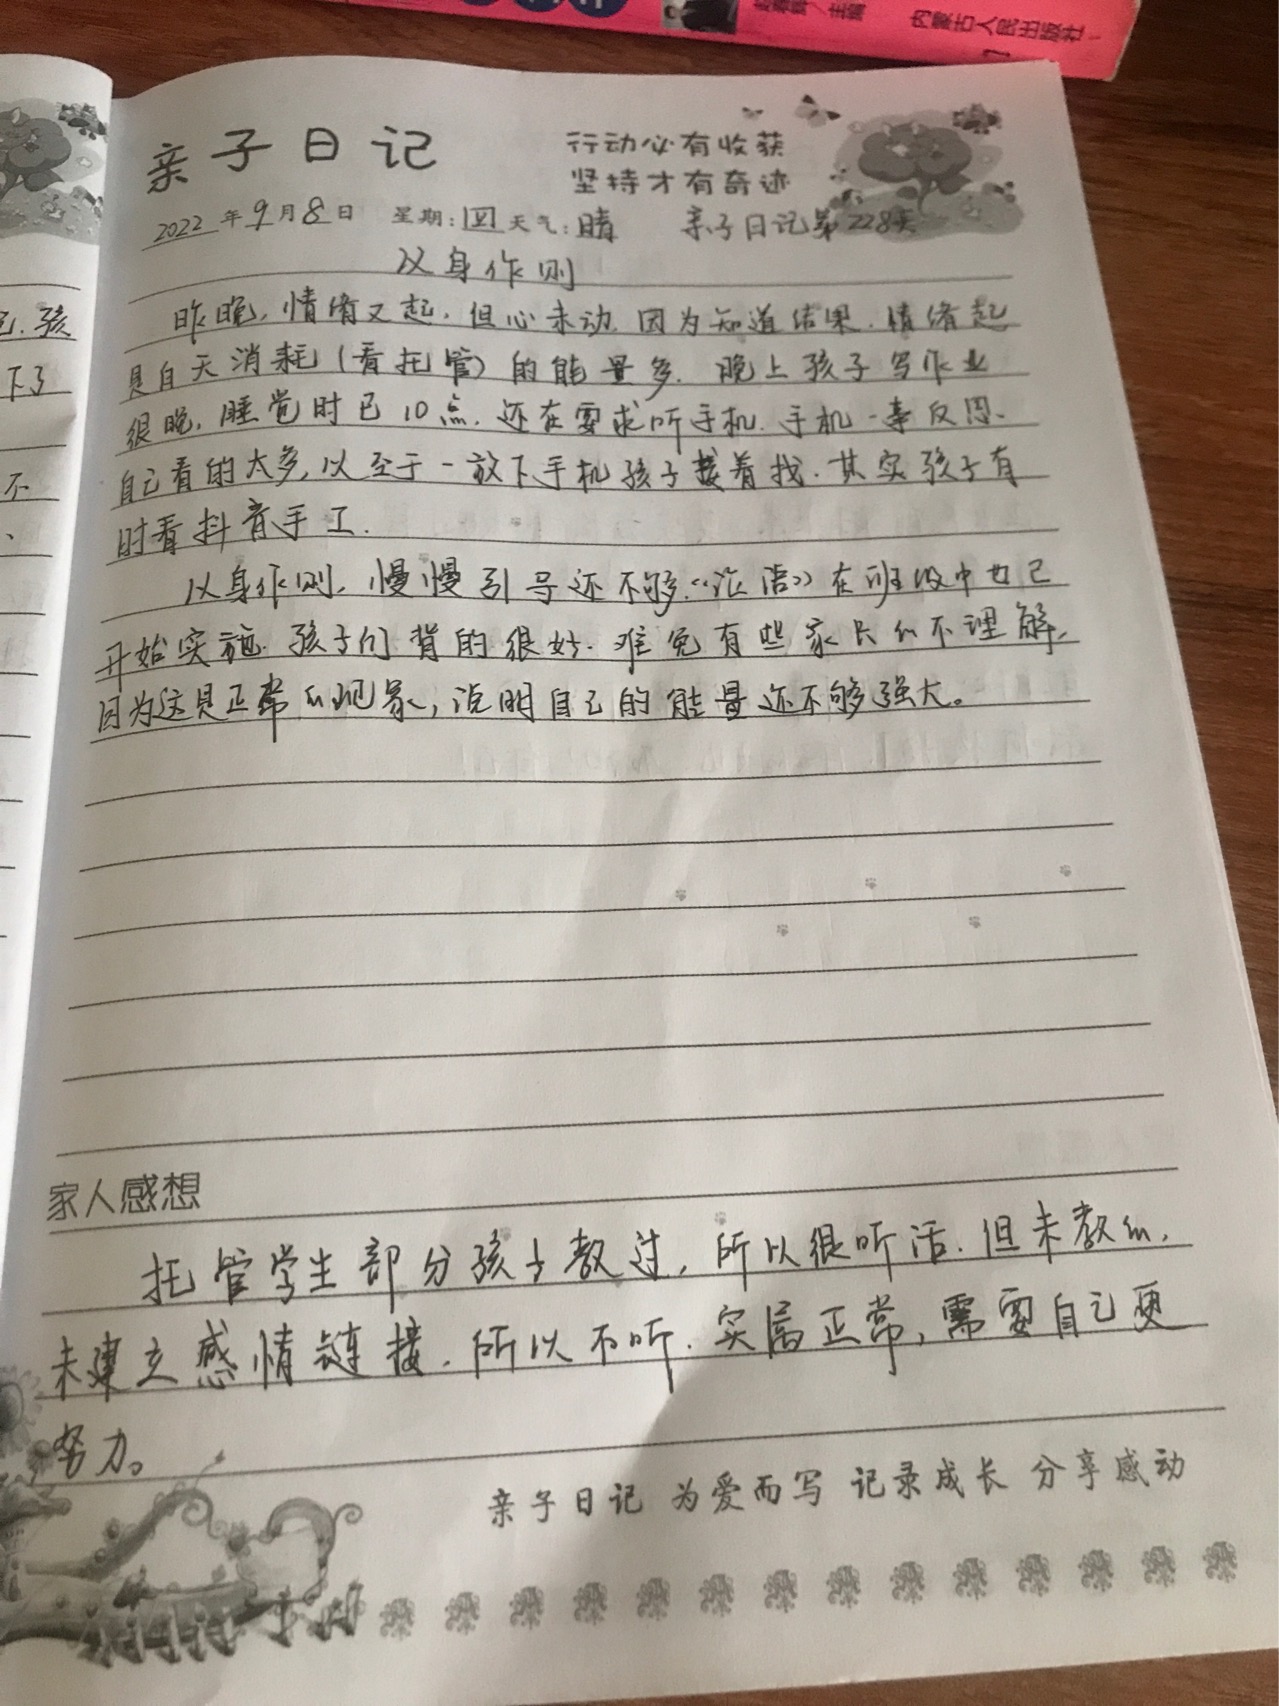 主编
内蒙古人民出版社
亲子日记
行动必有收获
坚持才有奇迹
2022年9月8日 星期:四 天气:晴 亲子日记第228天
以身作则
昨晚,情绪又起,但心未动,因为知道结果.情绪起
是白天消耗(看托管)的能量多.晚上孩子写作业
很晚,睡觉时已10点.还在要求听手机.手机一事反思、
自己看的太多,以至于一放下手机孩子接着找.其实孩子有
时看抖音手工.
以身作则,慢慢引导还不够.《论语》在班级中也已
开始实施.孩子们背的很好.难免有些家长的不理解,
因为这是正常的现象,说明自己的能量还不够强大。
家人感想
托管学生部分孩子教过,所以很听话.但未教的,
未建立感情链接.所以不听.实属正常,需要自己更
努力。
亲子日记 为爱而写 记录成长 分享感动
孩
下了
不